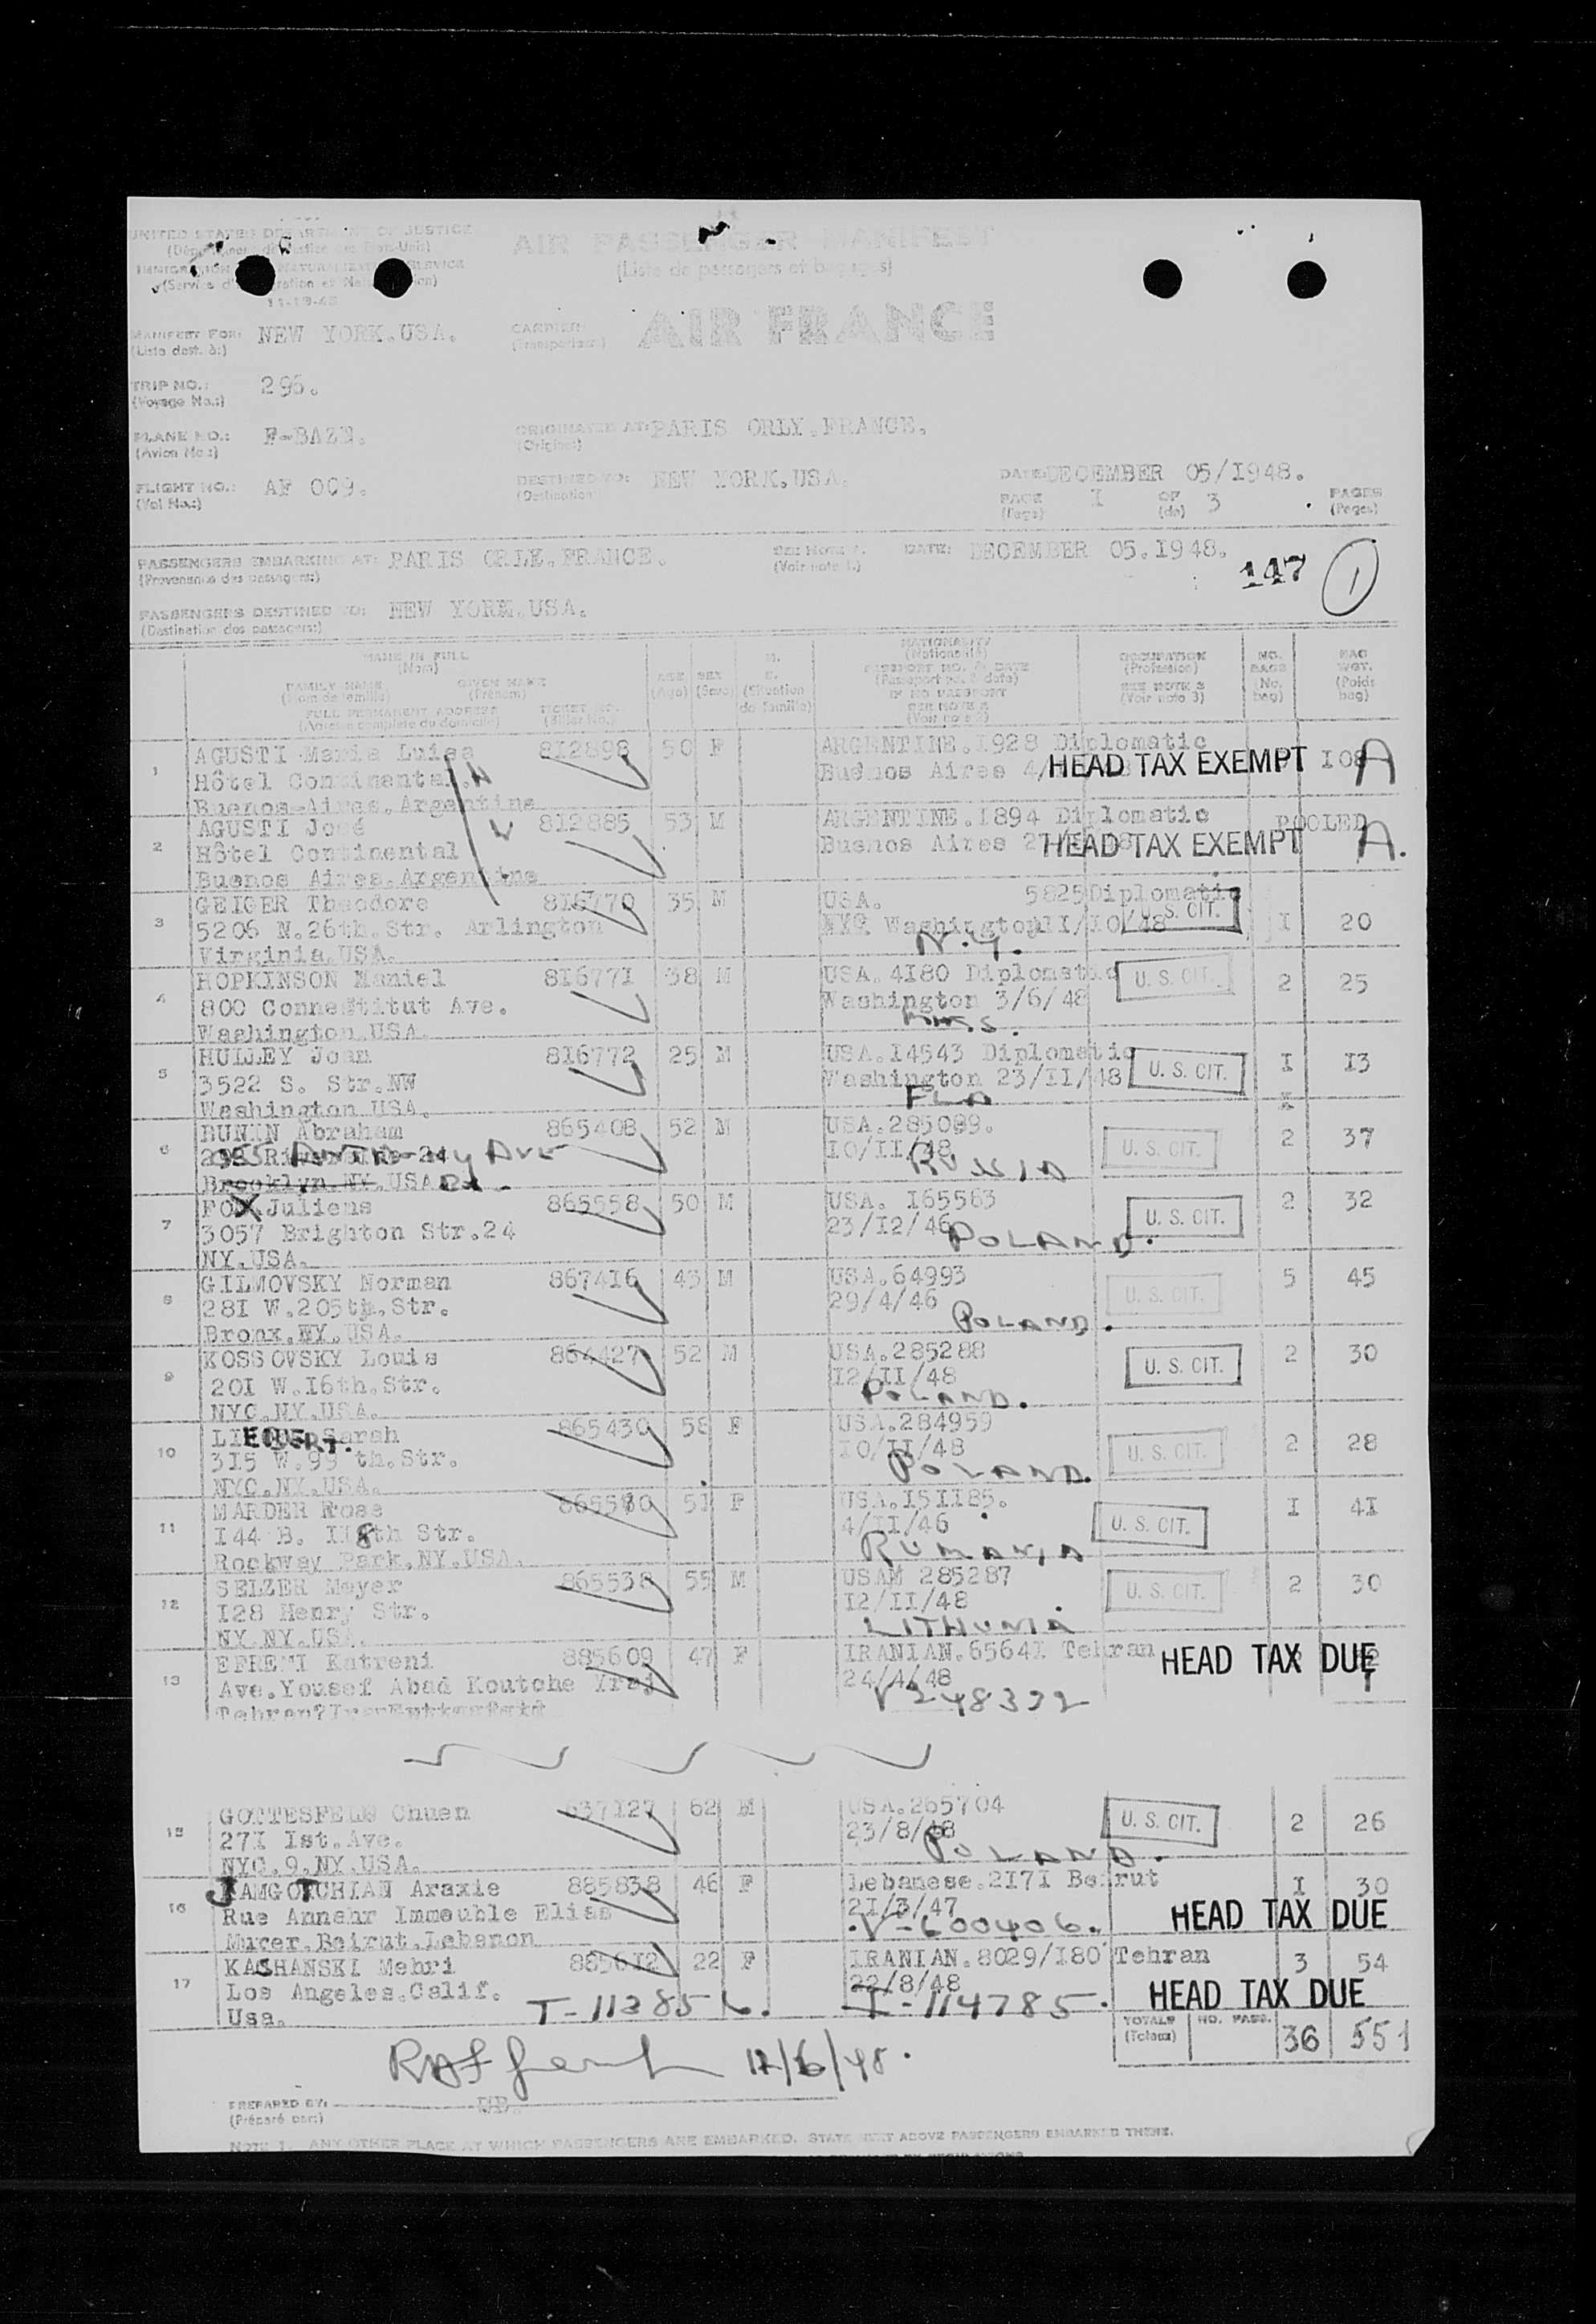 UNITED STATES DEPARTMENT OF JUSTICE
AIR PASSENGER MANIFEST
(Liste de passagers et bagages)
11-18-48
MANIFEST FOR: NEW YORK.USA.
(Liste dest. à:)
CARRIER: AIR FRANCE
(Transporteur:)
TRIP NO.: 295.
(Voyage No.:)
PLANE NO.: F-BAZN.
(Avion No.:)
ORIGINATED AT: PARIS ORLY.FRANCE.
(Origine:)
FLIGHT NO.: AF 009.
(Vol No.:)
DESTINED TO: NEW YORK.USA.
(Destination:)
DATE: DECEMBER 05/I948.
PAGE I OF 3 PAGES
(Page) (de) (Pages)
PASSENGERS EMBARKING AT: PARIS ORLE.FRANCE.
(Provenance des passagers:)
SEE NOTE 1.
(Voir note 1.)
DATE: DECEMBER 05.I948.
147 1
PASSENGERS DESTINED TO: NEW YORK.USA.
(Destination des passagers:)
NAME IN FULL
(Nom)
FAMILY NAME GIVEN NAME
(Nom de famille) (Prénom)
FULL PERMANENT ADDRESS TICKET NO.
(Adresse complète du domicile) (Billet No.)
AGE
(Age)
SEX
(Sexe)
(Situation de famille)
NATIONALITY
(Nationalité)
PASSPORT NO. & DATE
(Passeport no. & date)
IF NO PASSPORT
SEE NOTE 2
(Voir note 2)
OCCUPATION
(Profession)
SEE NOTE 3
(Voir note 3)
NO. BAGS
(No. bag)
BAG WGT.
(Poids bag)
1 AGUSTI Maria Luisa 8I2898 50 F ARGENTINE.I928 Diplomatic
Hôtel Continental Buenos Aires HEAD TAX EXEMPT I08 A
Buenos-Aires.Argentine
2 AGUSTI José 8I2885 53 M ARGENTINE.I894 Diplomatic POOLED
Hôtel Continental Buenos Aires HEAD TAX EXEMPT A.
Buenos Aires.Argentine
3 GEIGER Theodore 8I6770 35 M USA. 5825 Diplomatic
5206 N.26th.Str. Arlington Washington II/IO/48 U. S. CIT. I 20
Virginia.USA. N.Y.
4 HOPKINSON Maniel 8I677I 38 M USA.4I80 Diplomatic U. S. CIT. 2 25
800 Connectitut Ave. Washington 3/6/48
Washington.USA. Mass.
5 HULLEY Joan 8I6772 25 M USA.I4543 Diplomatic I I3
3522 S. Str.NW Washington 23/II/48 U. S. CIT.
Washington.USA. FLA
6 BUNIN Abraham 865408 52 M USA.285099. 2 37
ANTHONY AVE IO/II/48 U. S. CIT.
Brooklyn.NY.USA BX. RUSSIA
7 FOX Juliens 865558 50 M USA. I65563 2 32
3057 Brighton Str.24 23/I2/46 U. S. CIT.
NY.USA. POLAND.
8 GILMOVSKY Norman 8674I6 43 M USA.64993 5 45
28I W.205th.Str. 29/4/46 U. S. CIT.
Bronx.NY.USA. POLAND.
9 KOSSOVSKY Louis 864427 52 M USA.285288 2 30
20I W.I6th.Str. I2/II/48 U. S. CIT.
NYC.NY.USA. POLAND.
10 Sarah 865430 58 F USA.284959
3I5 W.99 th.Str. IO/II/48 U. S. CIT. 2 28
NYC.NY.USA. POLAND.
11 MARDER Rose 865580 5I F USA.I5II85. I 4I
I44 B. II8th Str. 4/II/46 U. S. CIT.
Rockway Park.NY.USA. RUMANIA
12 SELZER Meyer 865538 55 M USAM 285287 2 30
I28 Henry Str. I2/II/48 U. S. CIT.
NY.NY.USA. LITHUNIA
13 EFREMI Katreni 885609 47 F IRANIAN.6564I Tehran HEAD TAX DUE
Ave.Yousef Abad Koutche Iraj 24/4/48
V 248332
15 GOTTESFELD Chuen 637I27 62 M USA.265704
27I Ist.Ave. 23/8/48 U. S. CIT. 2 26
NYC.9.NY.USA. POLAND.
16 JAMGOTCHIAN Araxie 885838 46 F Lebanese.2I7I Beirut I 30
Rue Annahr Immeuble Elias 2I/3/47 HEAD TAX DUE
Murer.Beirut.Lebanon V-600406.
17 KASHANSKI Mehri 8856I2 22 F IRANIAN.8029/I80 Tehran 3 54
Los Angeles.Calif. 22/8/48 HEAD TAX DUE
Usa. I-114785.
TOTALS NO. PASS. 36 551
(Totaux)
PREPARED BY:
(Préparé par:)
NOTE 1. ANY OTHER PLACE AT WHICH PASSENGERS ARE EMBARKED, STATE NEXT ABOVE PASSENGERS EMBARKED THERE.